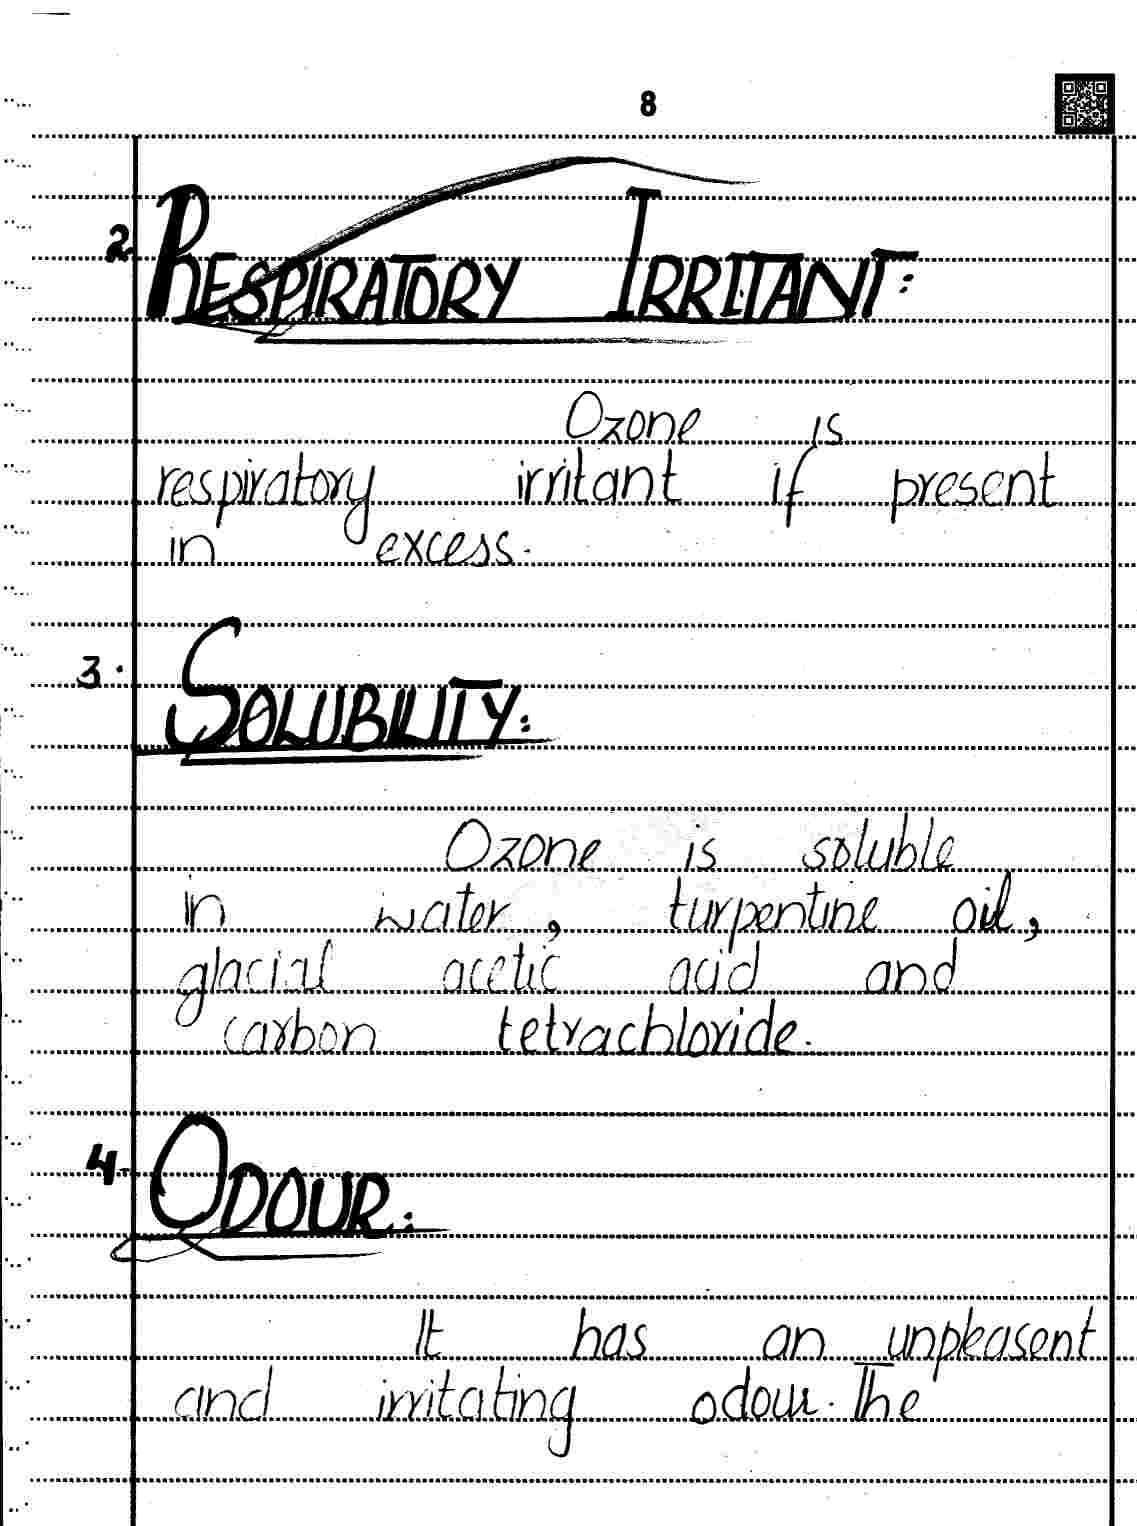 8
2. RESPIRATORY IRRITANT:
Ozone is
respiratory irritant if present
in excess.
3. SOLUBILITY:
Ozone is soluble
in water, turpentine oil,
glacial acetic acid and
carbon tetrachloride.
4. ODOUR:
It has an unpleasent
and irritating odour. The